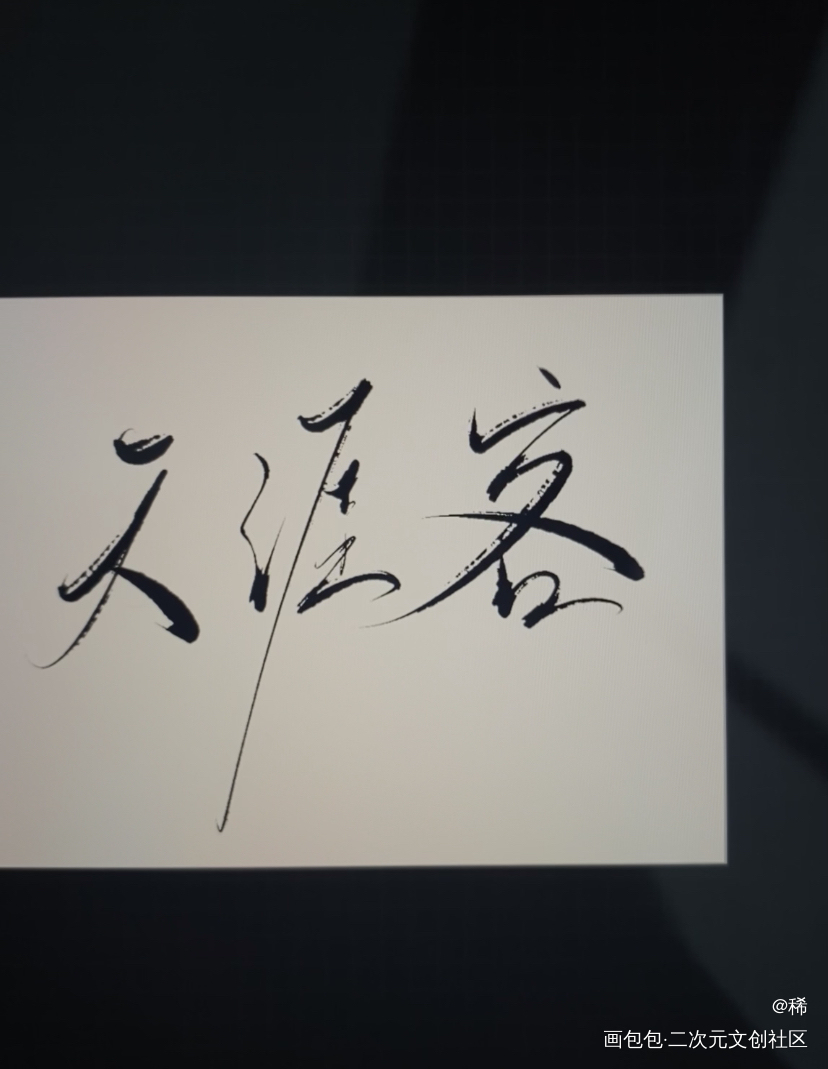 天涯客
@稀
画包包·二次元文创社区